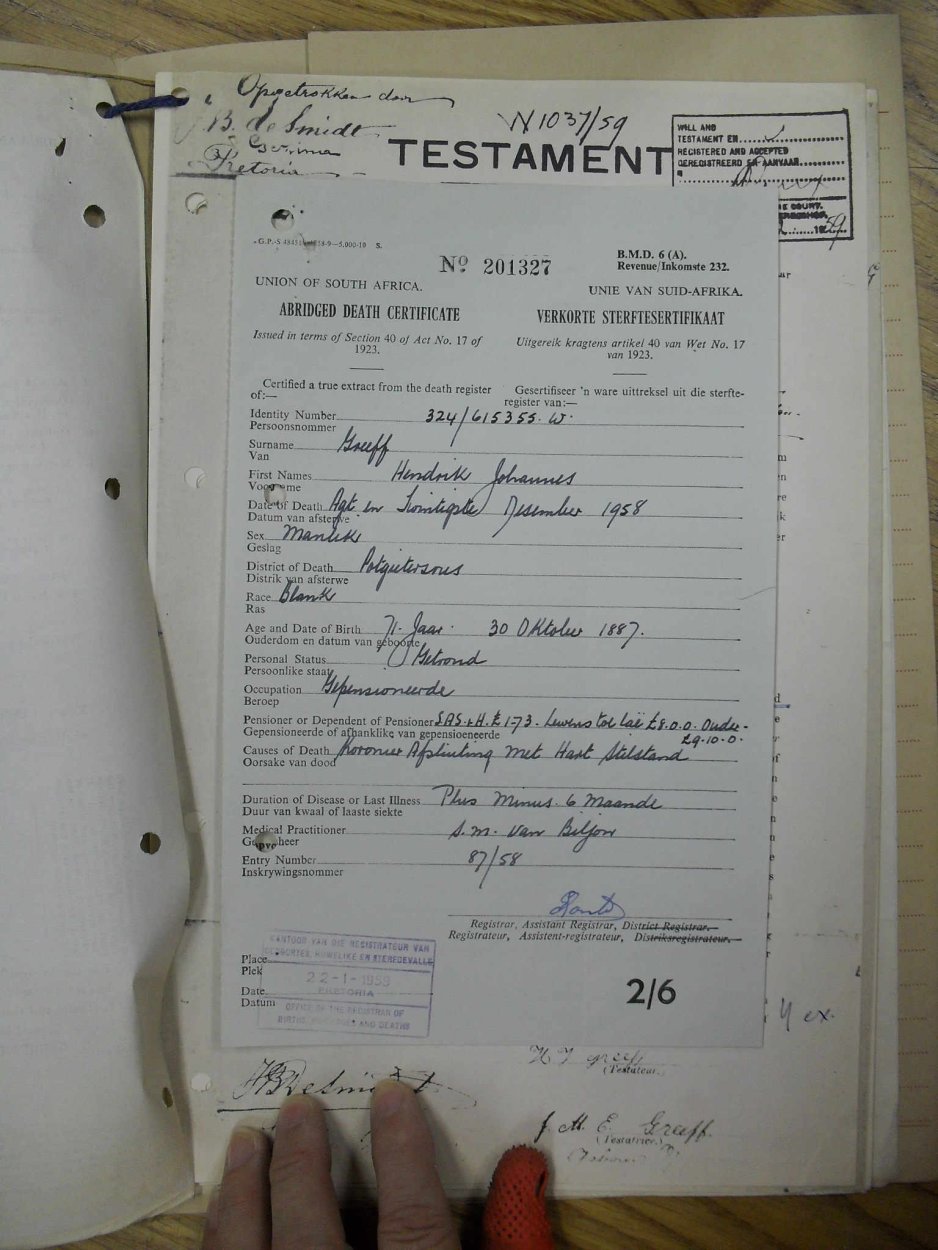 Opgetrokken door
B. de Smidt
Pretoria
N 1037/59
TESTAMENT
WILL AND
TESTAMENT EN
REGISTERED AND ACCEPTED
GEREGISTREERD EN AANVAAR
E COURT.
19 59
G.P.-S
5,000-10 S.
Nº 201327
B.M.D. 6 (A).
Revenue/Inkomste 232.
UNION OF SOUTH AFRICA.
UNIE VAN SUID-AFRIKA.
ABRIDGED DEATH CERTIFICATE
VERKORTE STERFTESERTIFIKAAT
Issued in terms of Section 40 of Act No. 17 of
1923.
Uitgereik kragtens artikel 40 van Wet No. 17
van 1923.
Certified a true extract from the death register
of:—
Gesertifiseer 'n ware uittreksel uit die sterfte-
register van:—
Identity Number 324/615355. W.
Persoonsnommer
Surname Greeff
Van
First Names Hendrik Johannes
Voorname
Date of Death Agt en Twintigste Desember 1958
Datum van afsterwe
Sex Manlik
Geslag
District of Death Potgietersrus
Distrik van afsterwe
Race Blank
Ras
Age and Date of Birth 71 Jaar. 30 Oktober 1887.
Ouderdom en datum van geboorte
Personal Status Getroud
Persoonlike staat
Occupation Gepensioneerde
Beroep
Pensioner or Dependent of Pensioner S.A.S. & H. £1-7-3. Lewens toe laë £8.0.0. Ouder-
Gepensioeneerde of afhanklike van gepensioeneerde £9.10.0.
Causes of Death Koronêr Afsluiting met Hart Stilstand
Oorsake van dood
Duration of Disease or Last Illness Plus Minus 6 Maande
Duur van kwaal of laaste siekte
Medical Practitioner S. M. van Biljon
Geneesheer
Entry Number 87/58
Inskrywingsnommer
Registrar, Assistant Registrar, District Registrar.
Registrateur, Assistent-registrateur, Distriksregistrateur.
KANTOOR VAN DIE REGISTRATEUR VAN
GEBOORTES, HUWELIKE EN STERFGEVALLE
Place
Plek
22-1-1959
PRETORIA
Date
Datum
OFFICE OF THE REGISTRAR OF
BIRTHS, MARRIAGES AND DEATHS
2/6
H J Greeff
(Testateur.)
B de Smidt
J. M. E. Greeff.
(Testatrice.)